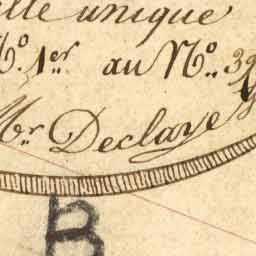 unique
N.º 1.er au N.º 39
Mr Declaye
B